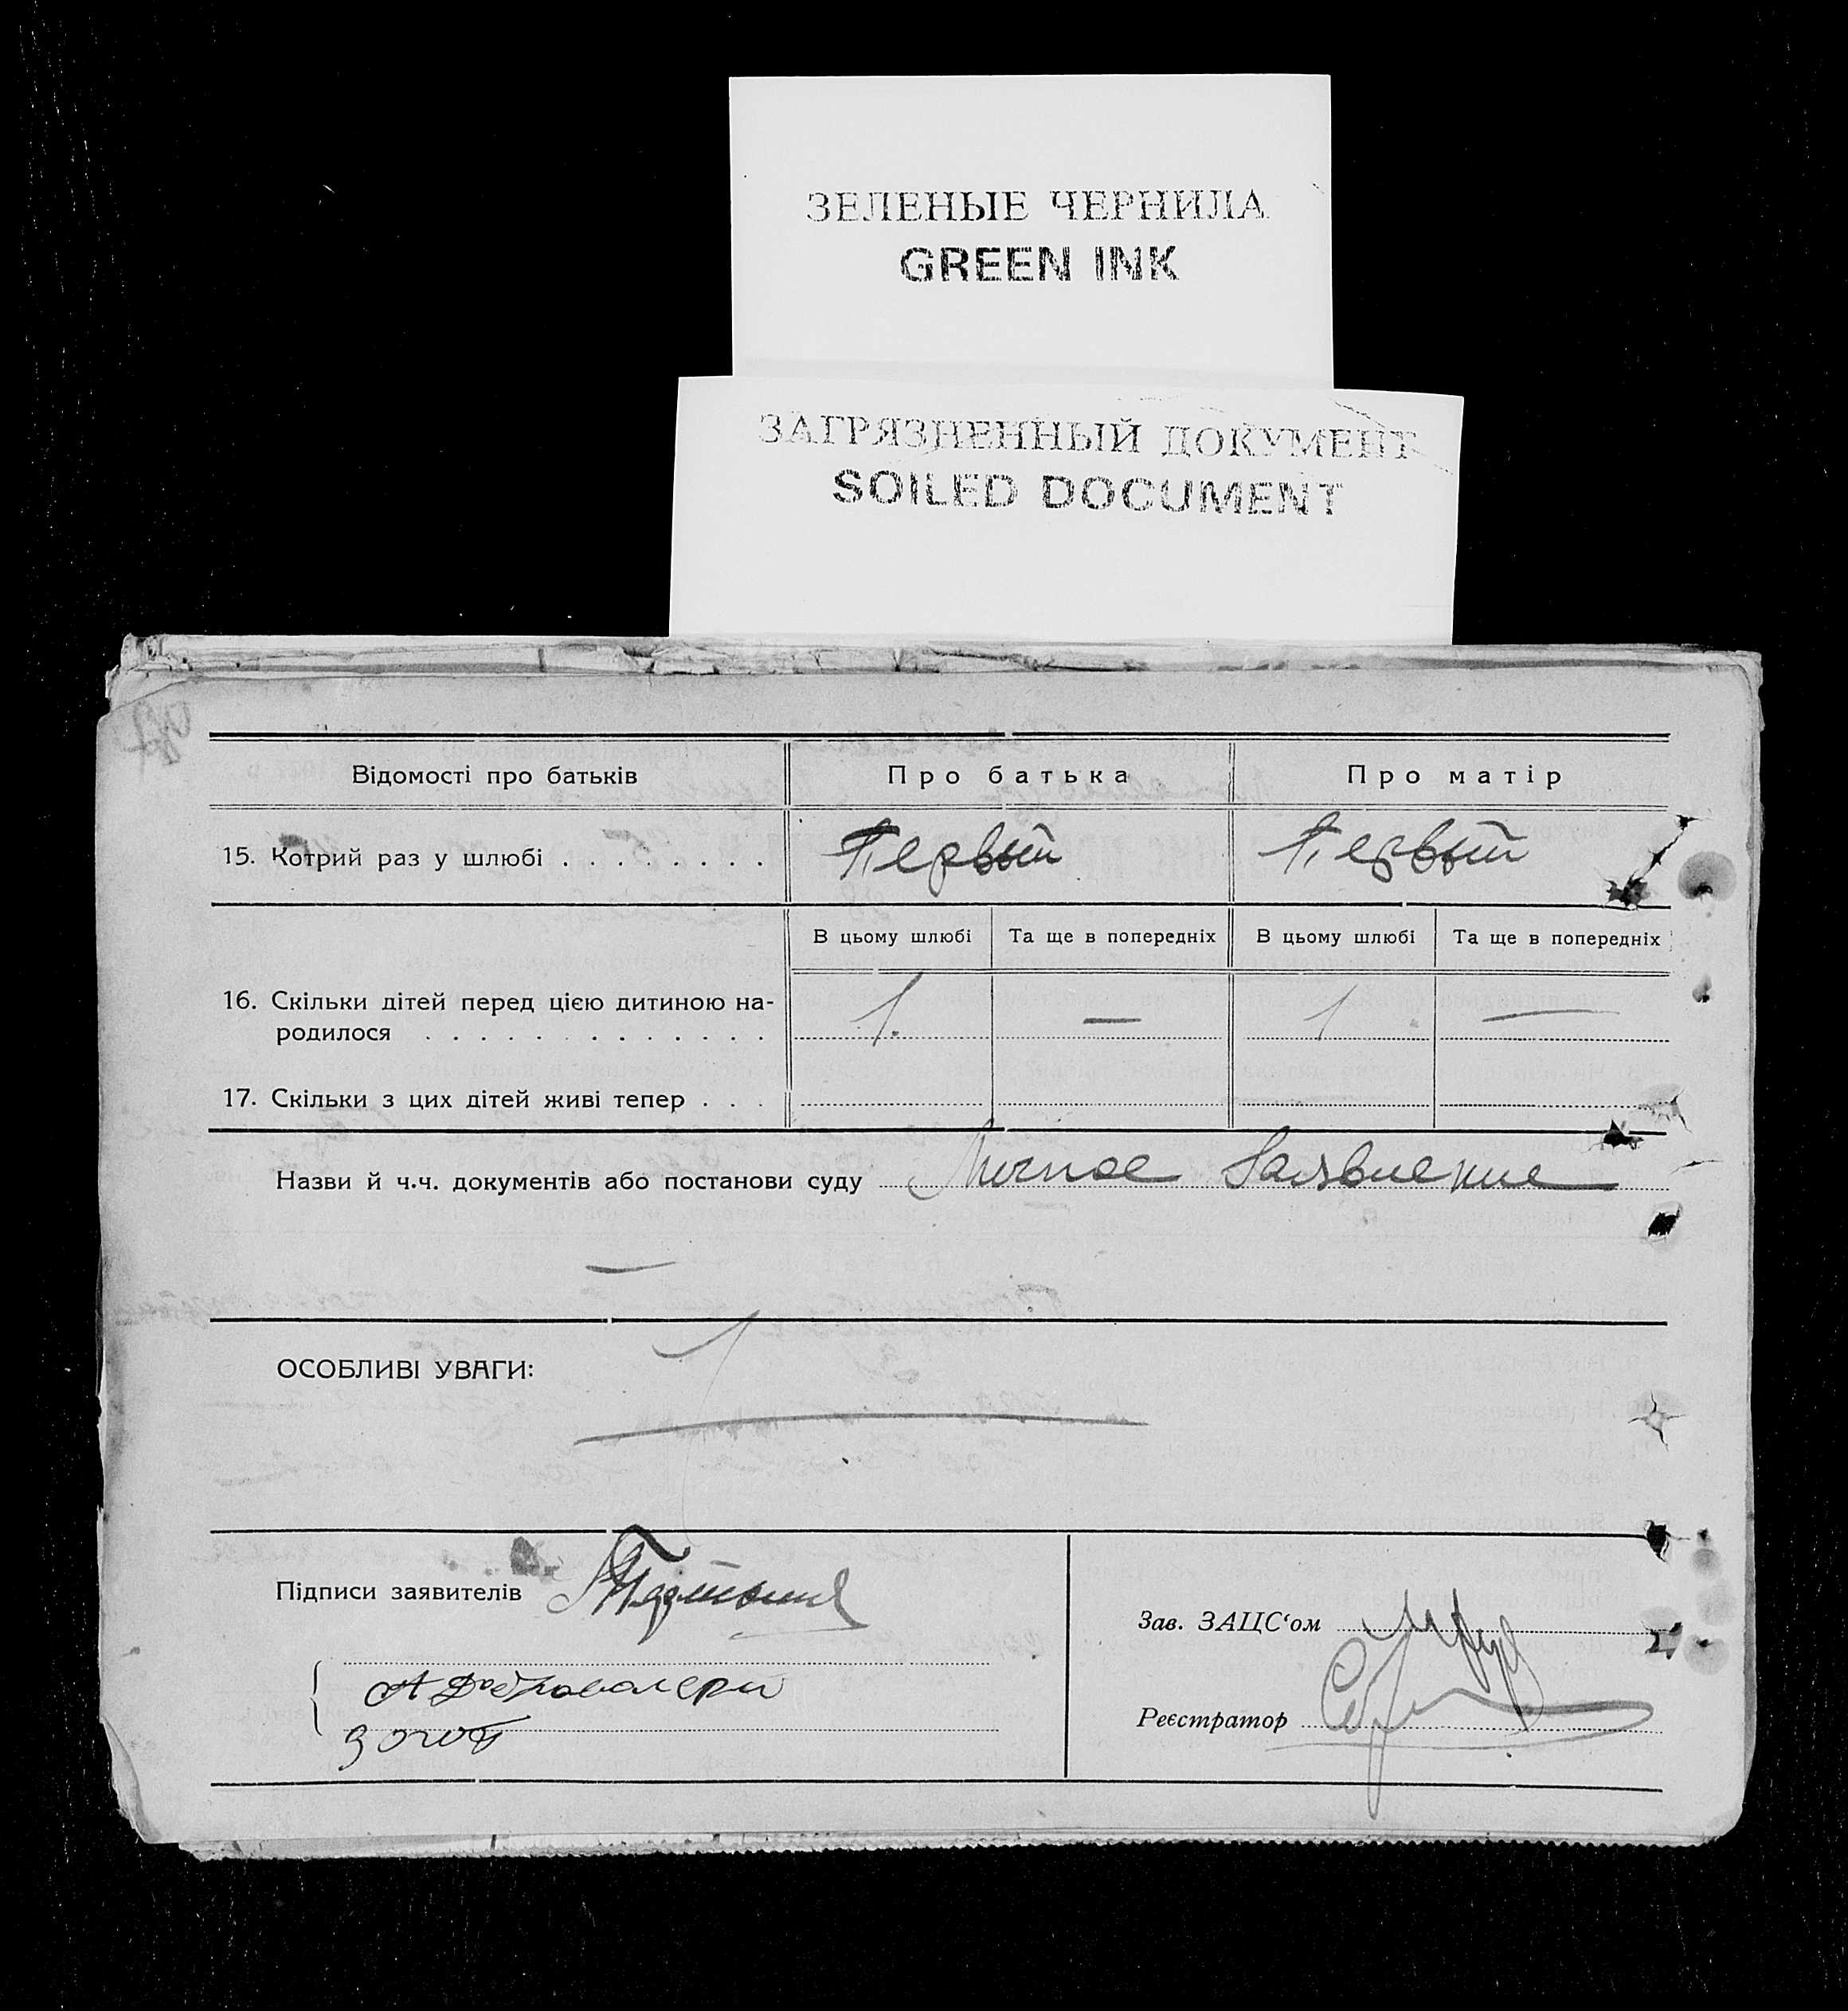 ЗЕЛЕНЫЕ ЧЕРНИЛА
GREEN INK
ЗАГРЯЗНЕННЫЙ ДОКУМЕНТ
SOILED DOCUMENT
Відомості про батьків Про батька Про матір
15. Котрий раз у шлюбі . . . . . . . . Первый Первый
В цьому шлюбі Та ще в попередніх В цьому шлюбі Та ще в попередніх
16. Скільки дітей перед цією дитиною на-
родилося . . . . . . . . . . . . . 1. — 1 —
17. Скільки з цих дітей живі тепер . . .
Назви й ч.ч. документів або постанови суду Личное Заявление
—
ОСОБЛИВІ УВАГИ:
Підписи заявителів
Зав. ЗАЦС‘ом
Реєстратор